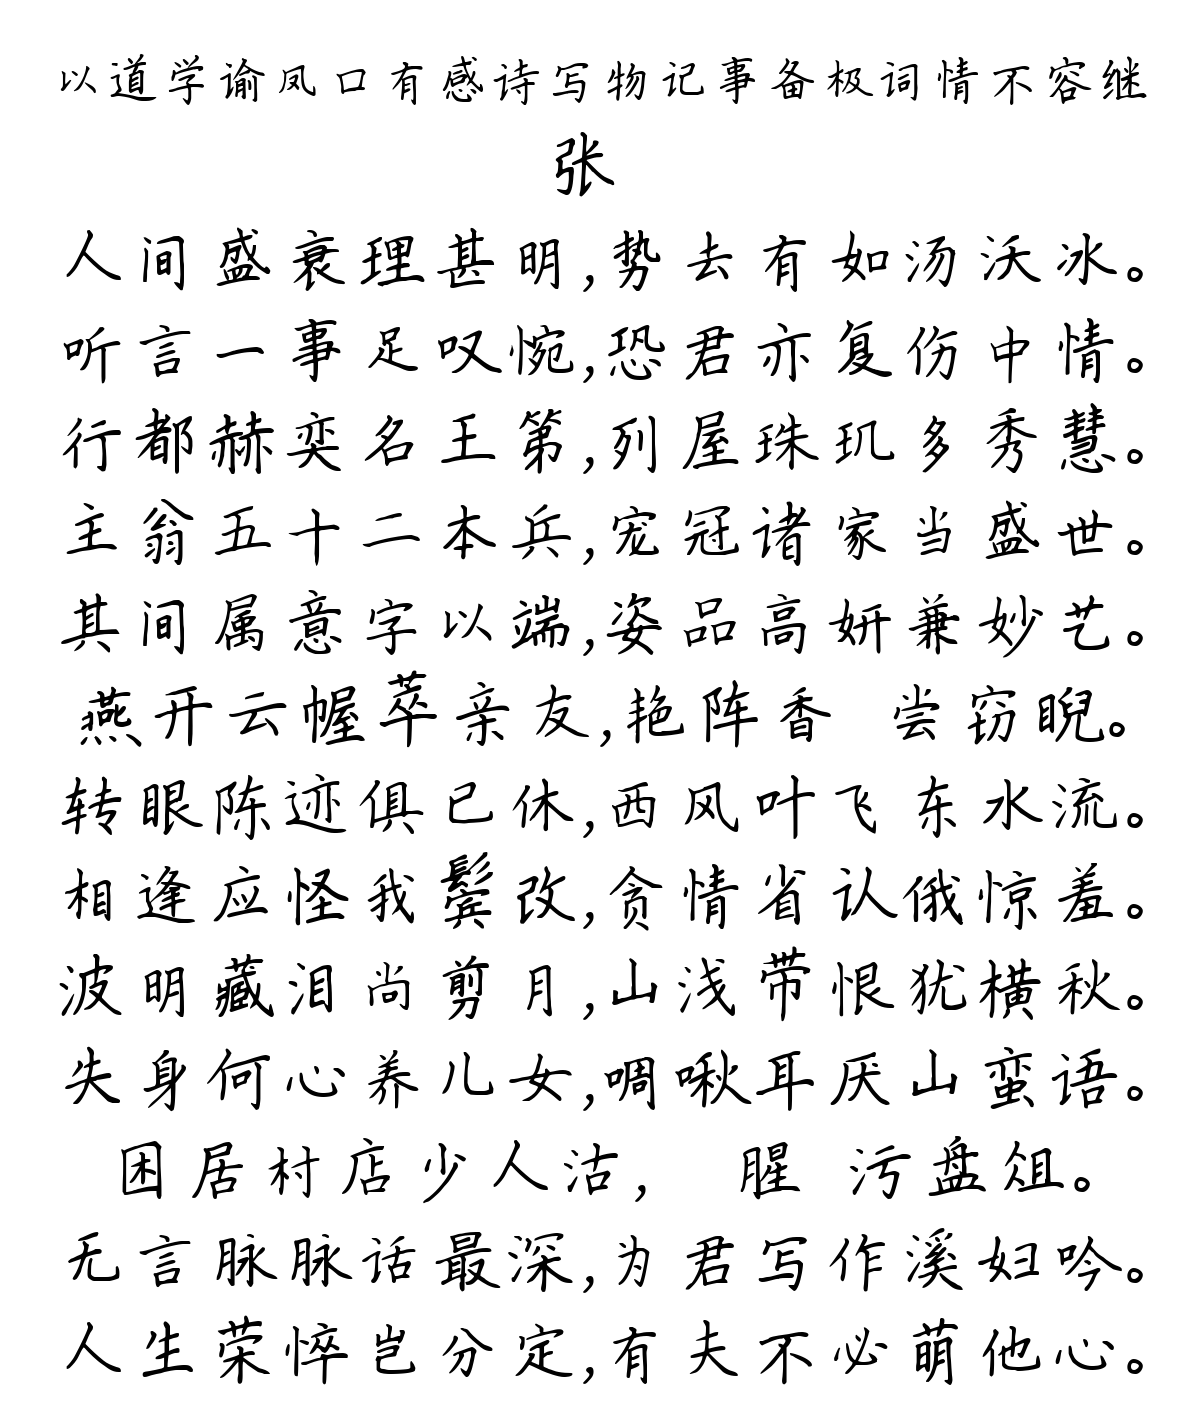 以道学谕凤口有感诗写物记事备极词情不容继
张
人间盛衰理甚明,势去有如汤沃冰。
听言一事足叹惋,恐君亦复伤中情。
行都赫奕名王第,列屋珠玑多秀慧。
主翁五十二本兵,宠冠诸家当盛世。
其间属意字以端,姿品高妍兼妙艺。
燕开云幄萃亲友,艳阵香 尝窃睨。
转眼陈迹俱已休,西风叶飞东水流。
相逢应怪我鬓改,贪情省认俄惊羞。
波明藏泪尚剪月,山浅带恨犹横秋。
失身何心养儿女,啁啾耳厌山蛮语。
困居村店少人沽, 腥 污盘俎。
无言脉脉话最深,为君写作溪妇吟。
人生荣悴岂分定,有夫不必萌他心。